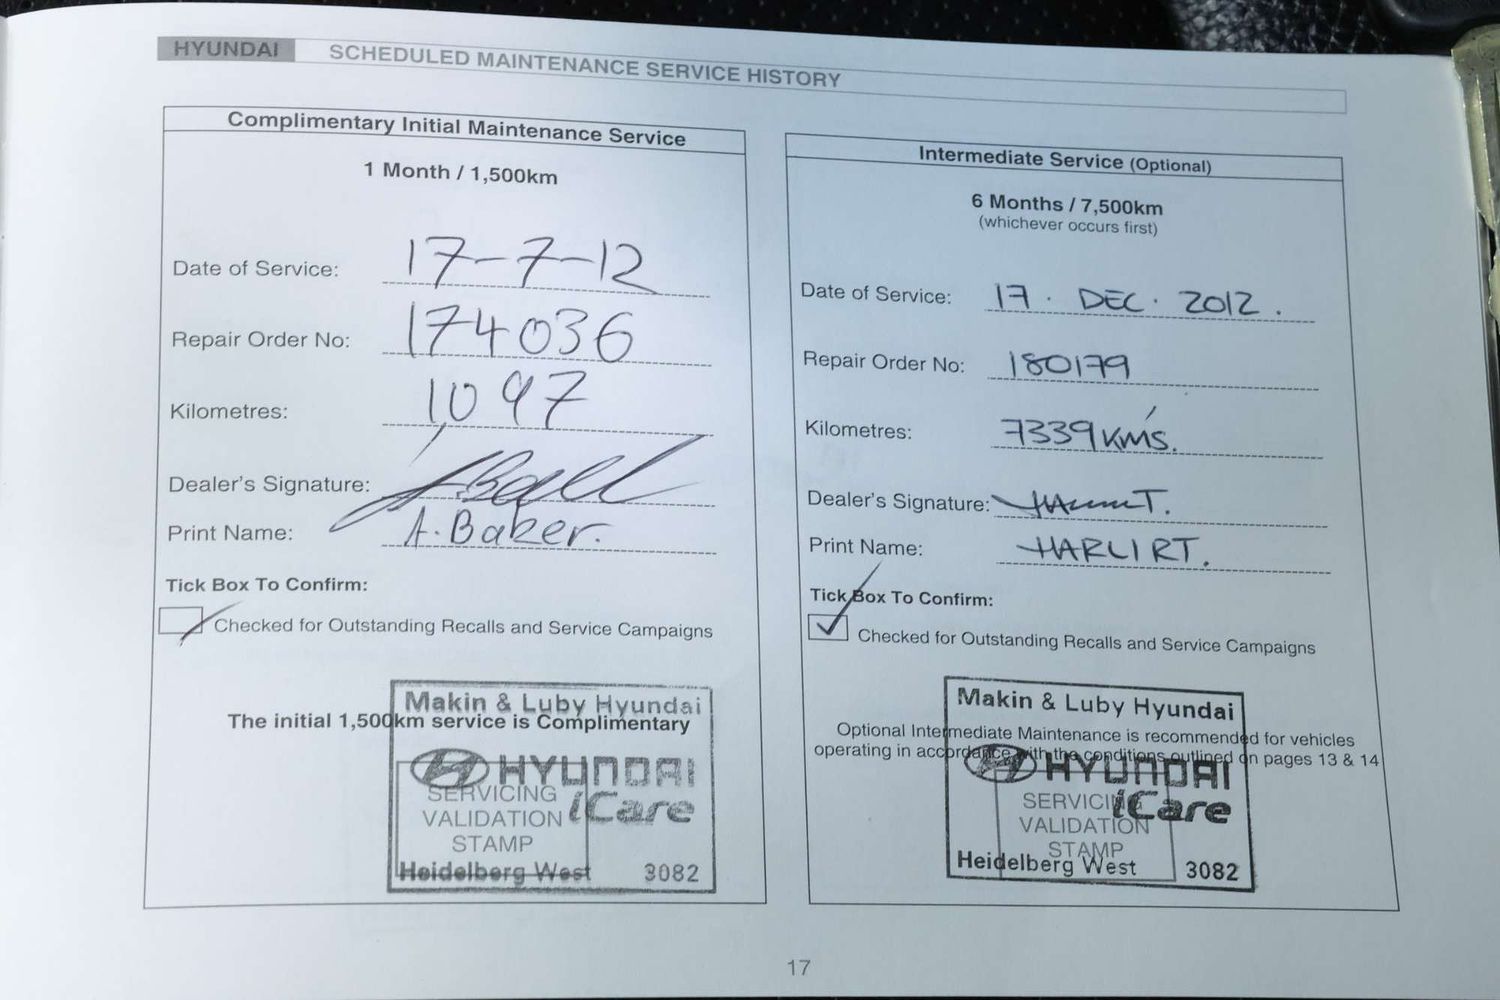 HYUNDAI SCHEDULED MAINTENANCE SERVICE HISTORY
Complimentary Initial Maintenance Service
1 Month / 1,500km
Date of Service: 17-7-12
Repair Order No: 174036
Kilometres: 1,097
Dealer's Signature:
Print Name: A. Baker.
Tick Box To Confirm:
Checked for Outstanding Recalls and Service Campaigns
The initial 1,500km service is Complimentary
Makin & Luby Hyundai
HYUNDAI
iCare
SERVICING
VALIDATION
STAMP
Heidelberg West 3082
Intermediate Service (Optional)
6 Months / 7,500km
(whichever occurs first)
Date of Service: 17. DEC. 2012.
Repair Order No: 180179
Kilometres: 7339 KMS.
Dealer's Signature:
Print Name: HARLIRT.
Tick Box To Confirm:
Checked for Outstanding Recalls and Service Campaigns
Optional Intermediate Maintenance is recommended for vehicles
operating in accordance with the conditions outlined on pages 13 & 14
Makin & Luby Hyundai
HYUNDAI
iCare
SERVICING
VALIDATION
STAMP
Heidelberg West 3082
17